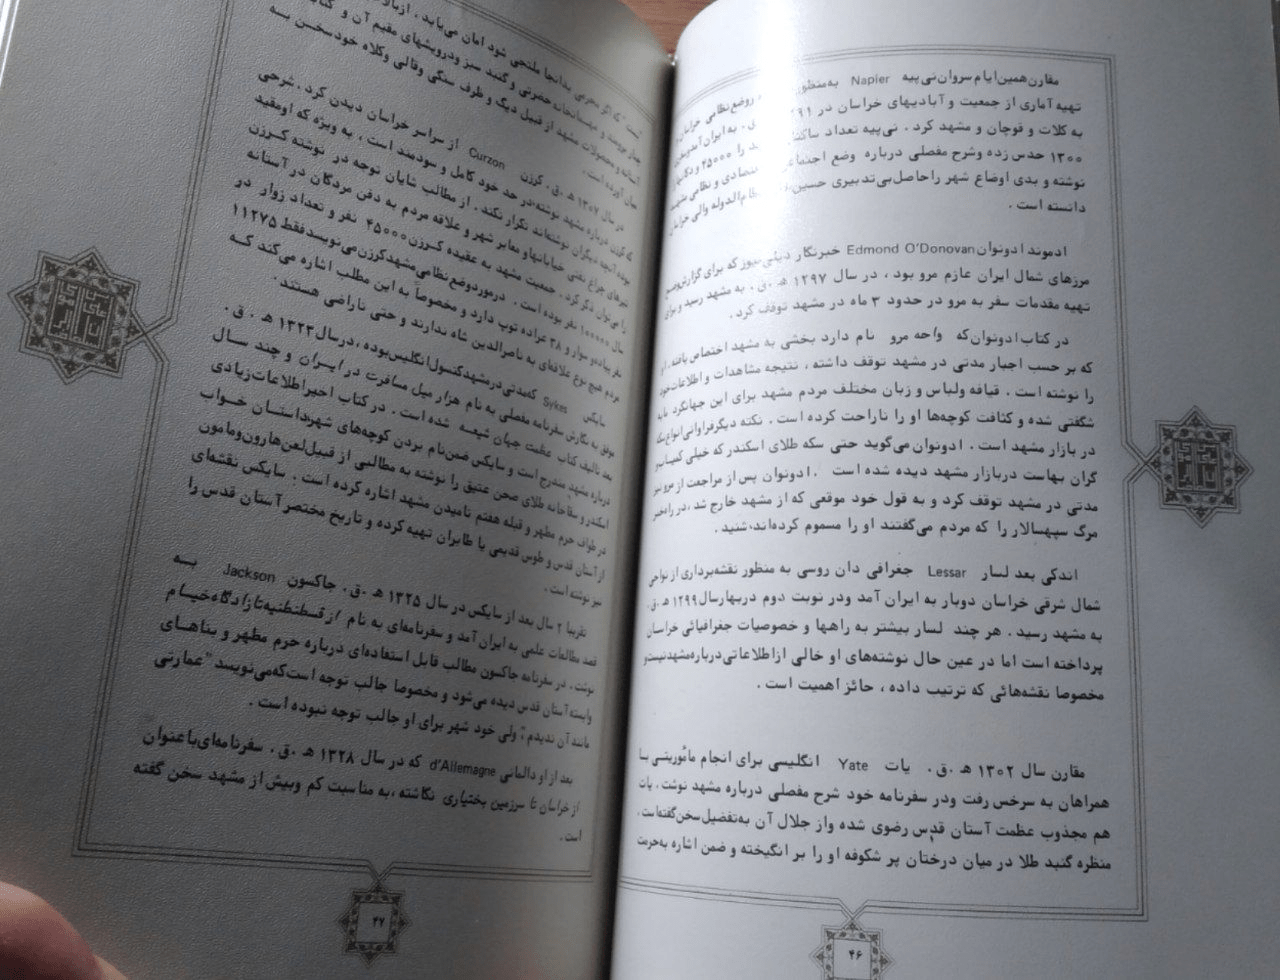 مقارن همین ایام سروان نی‌پیه Napier به‌منظور وضع نظامی خراسان و
تهیه آماری از جمعیت و آبادیهای خراسان در به ایران آمد
به کلات و قوچان و مشهد کرد . نی‌پیه تعداد را ۴۵۰۰۰
۱۳۰۰ حدس زده و شرح مفصلی درباره وضع و نظامی
نوشته و بدی اوضاع شهر را حاصل بی‌تدبیری حسین والی خراسان
دانسته است .
ادموند ادونوان Edmond O'Donovan خبرنگار دیلی نیوز که برای گزارش وضع
مرزهای شمال ایران عازم مرو بود ، در سال ۱۲۹۷ هـ .ق. به مشهد رسید و برای
تهیه مقدمات سفر به مرو در حدود ۳ ماه در مشهد توقف کرد .
در کتاب ادونوان که واحه مرو نام دارد بخشی به مشهد اختصاص یافته ، او
که بر حسب اجبار مدتی در مشهد توقف داشته ، نتیجه مشاهدات و اطلاعات خود
را نوشته است . قیافه ولباس و زبان مختلف مردم مشهد برای این جهانگرد مایه
شگفتی شده و کثافت کوچه‌ها او را ناراحت کرده است . نکته دیگر فراوانی انواع سکه
در بازار مشهد است . ادونوان می‌گوید حتی سکه طلای اسکندر که خیلی کمیاب و
گران بهاست دربازار مشهد دیده شده است . ادونوان پس از مراجعت از مرو نیز
مدتی در مشهد توقف کرد و به قول خود موقعی که از مشهد خارج شد ، در راه خبر
مرگ سپهسالار را که مردم می‌گفتند او را مسموم کرده‌اند، شنید .
اندکی بعد لسار Lessar جغرافی دان روسی به منظور نقشه‌برداری از نواحی
شمال شرقی خراسان دوبار به ایران آمد ودر نوبت دوم دربهار سال ۱۲۹۹ هـ .ق.
به مشهد رسید . هر چند لسار بیشتر به راهها و خصوصیات جغرافیائی خراسان
پرداخته است اما در عین حال نوشته‌های او خالی از اطلاعاتی درباره مشهد نیست و
مخصوصا نقشه‌هائی که ترتیب داده ، حائز اهمیت است .
مقارن سال ۱۳۰۲ هـ .ق. یات Yate انگلیسی برای انجام مأموریتی با
همراهان به سرخس رفت ودر سفرنامه خود شرح مفصلی درباره مشهد نوشت ، یات
هم مجذوب عظمت آستان قدس رضوی شده واز جلال آن به‌تفضیل سخن گفته‌است .
منظره گنبد طلا در میان درختان پر شکوفه او را بر انگیخته و ضمن اشاره به‌حرمت
۴۶
است " که اگر مجرمی بدانجا ملتجی شود امان می‌یابد ، ازبالا
حضرتی و گنبد سبز ودرویشهای مقیم آن و
و محصولات مشهد از قبیل دیگ و ظرف سنگی وقالی وکلاه خود سخن به
میان آورده است .
در سال ۱۳۰۷ هـ .ق. کرزن Curzon از سراسر خراسان دیدن کرد . شرحی
که کرزن درباره مشهد نوشته، در حد خود کامل و سودمند است ، به ویژه که او مقید
بوده آنچه دیگران نوشته‌اند تکرار نکند . از مطالب شایان توجه در نوشته کرزن
تیرهای چراغ نفتی خیابانها و معابر شهر و علاقه مردم به دفن مردگان در آستانه
را می‌توان ذکر کرد . جمعیت مشهد به عقیده کرزن ۴۵۰۰۰ نفر و تعداد زوار در
سال ۱۰۰۰۰۰ نفر بوده است . در مورد وضع نظامی مشهد کرزن می‌نویسد فقط ۱۱۲۷۵
نفر پیاده و سوار و ۲۸ عراده توپ دارد و مخصوصاً به این مطلب اشاره می‌کند که
مردم هیچ نوع علاقه‌ای به ناصرالدین شاه ندارند و حتی ناراضی هستند .
سایکس Sykes که مدتی در مشهد کنسول انگلیس بوده ، در سال ۱۳۲۳ هـ .ق.
موفق به نگارش سفرنامه مفصلی به نام هزار میل مسافرت در ایران و چند سال
بعد تالیف کتاب عظمت جهان شیعه شده است . در کتاب اخیر اطلاعات زیادی
درباره مشهد مندرج است و سایکس ضمن نام بردن کوچه‌های شهر داستان خواب
اسکندر و سقاخانه طلای صحن عتیق را نوشته به مطالبی از قبیل لعن هارون ومامون
در طواف حرم مطهر و قبله هفتم نامیدن مشهد اشاره کرده است . سایکس نقشه‌ای
از آستان قدس و طوس قدیمی یا طابران تهیه کرده و تاریخ مختصر آستان قدس را
نیز نوشته است .
تقریبا ۲ سال بعد از سایکس در سال ۱۳۲۵ هـ .ق. جاکسون Jackson به
قصد مطالعات علمی به ایران آمد و سفرنامه‌ای به نام از قسطنطنیه تا زادگاه خیام
نوشت . در سفرنامه جاکسون مطالب قابل استفاده‌ای درباره حرم مطهر و بناهای
وابسته آستان قدس دیده می‌شود و مخصوصا جالب توجه است که می‌نویسد " عمارتی
مانند آن ندیدم " ولی خود شهر برای او جالب توجه نبوده است .
بعد از او دالمانی d'Allemagne که در سال ۱۳۲۸ هـ .ق. سفرنامه‌ای با عنوان
از خراسان تا سرزمین بختیاری نگاشته ، به مناسبت کم وبیش از مشهد سخن گفته
است .
۴۷